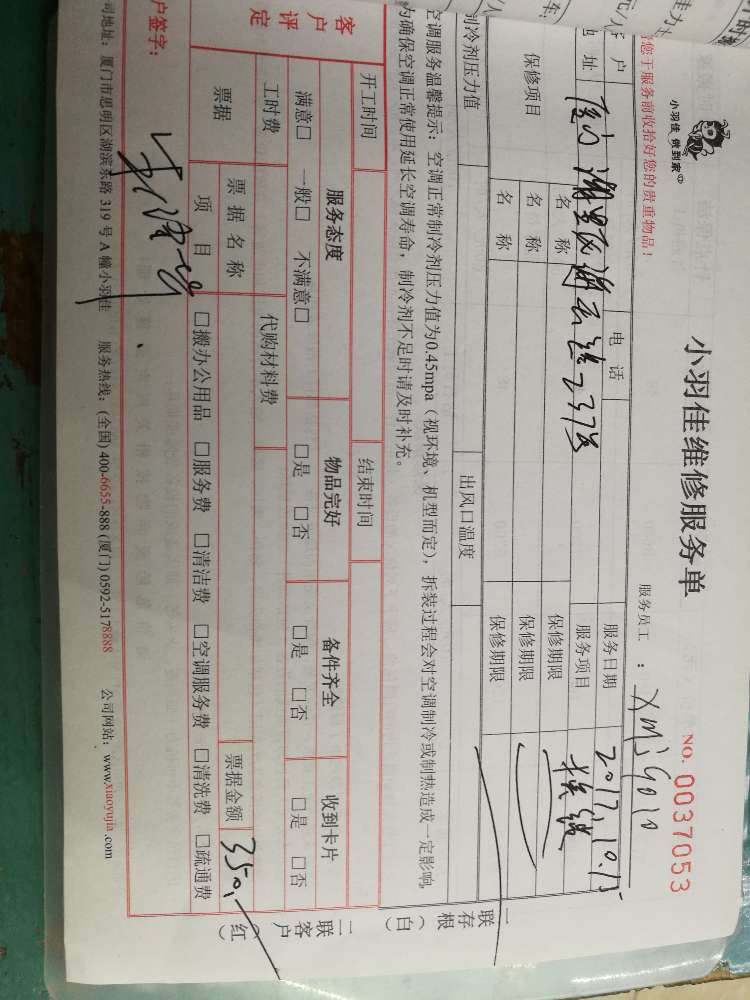 小羽佳 做到家
小羽佳维修服务单
NO. 0037053
请您于服务前收拾好您的贵重物品！
服务员工：XMJG010
户
电 话
服务日期
2017.10.15
地 址
厦门湖里区湖云道237号
服务项目
保修项目
名 称
保修期限
名 称
保修期限
名 称
保修期限
制冷剂压力值
出风口温度
空调服务温馨提示：空调正常制冷剂压力值为0.45mpa（视环境、机型而定），拆装过程会对空调制冷或制热造成一定影响，
为确保空调正常使用延长空调寿命，制冷剂不足时请及时补充。
开工时间
结束时间
客户评定
服务态度
物品完好
备件齐全
收到卡片
满意□ 一般□ 不满意□
□是 □否
□是 □否
□是 □否
工时费
代购材料费
票据
票 据 名 称
票据金额
350.
项 目
□搬办公用品 □服务费 □清洁费 □空调服务费 □清洗费 □疏通费
户签字：
司地址：厦门市思明区湖滨东路 319 号 A 幢小羽佳 服务热线：(全国) 400-6655-888 (厦门) 0592-5178888 公司网站：www.xiaoyujia.com
一联存根（白）
二联客户（红）